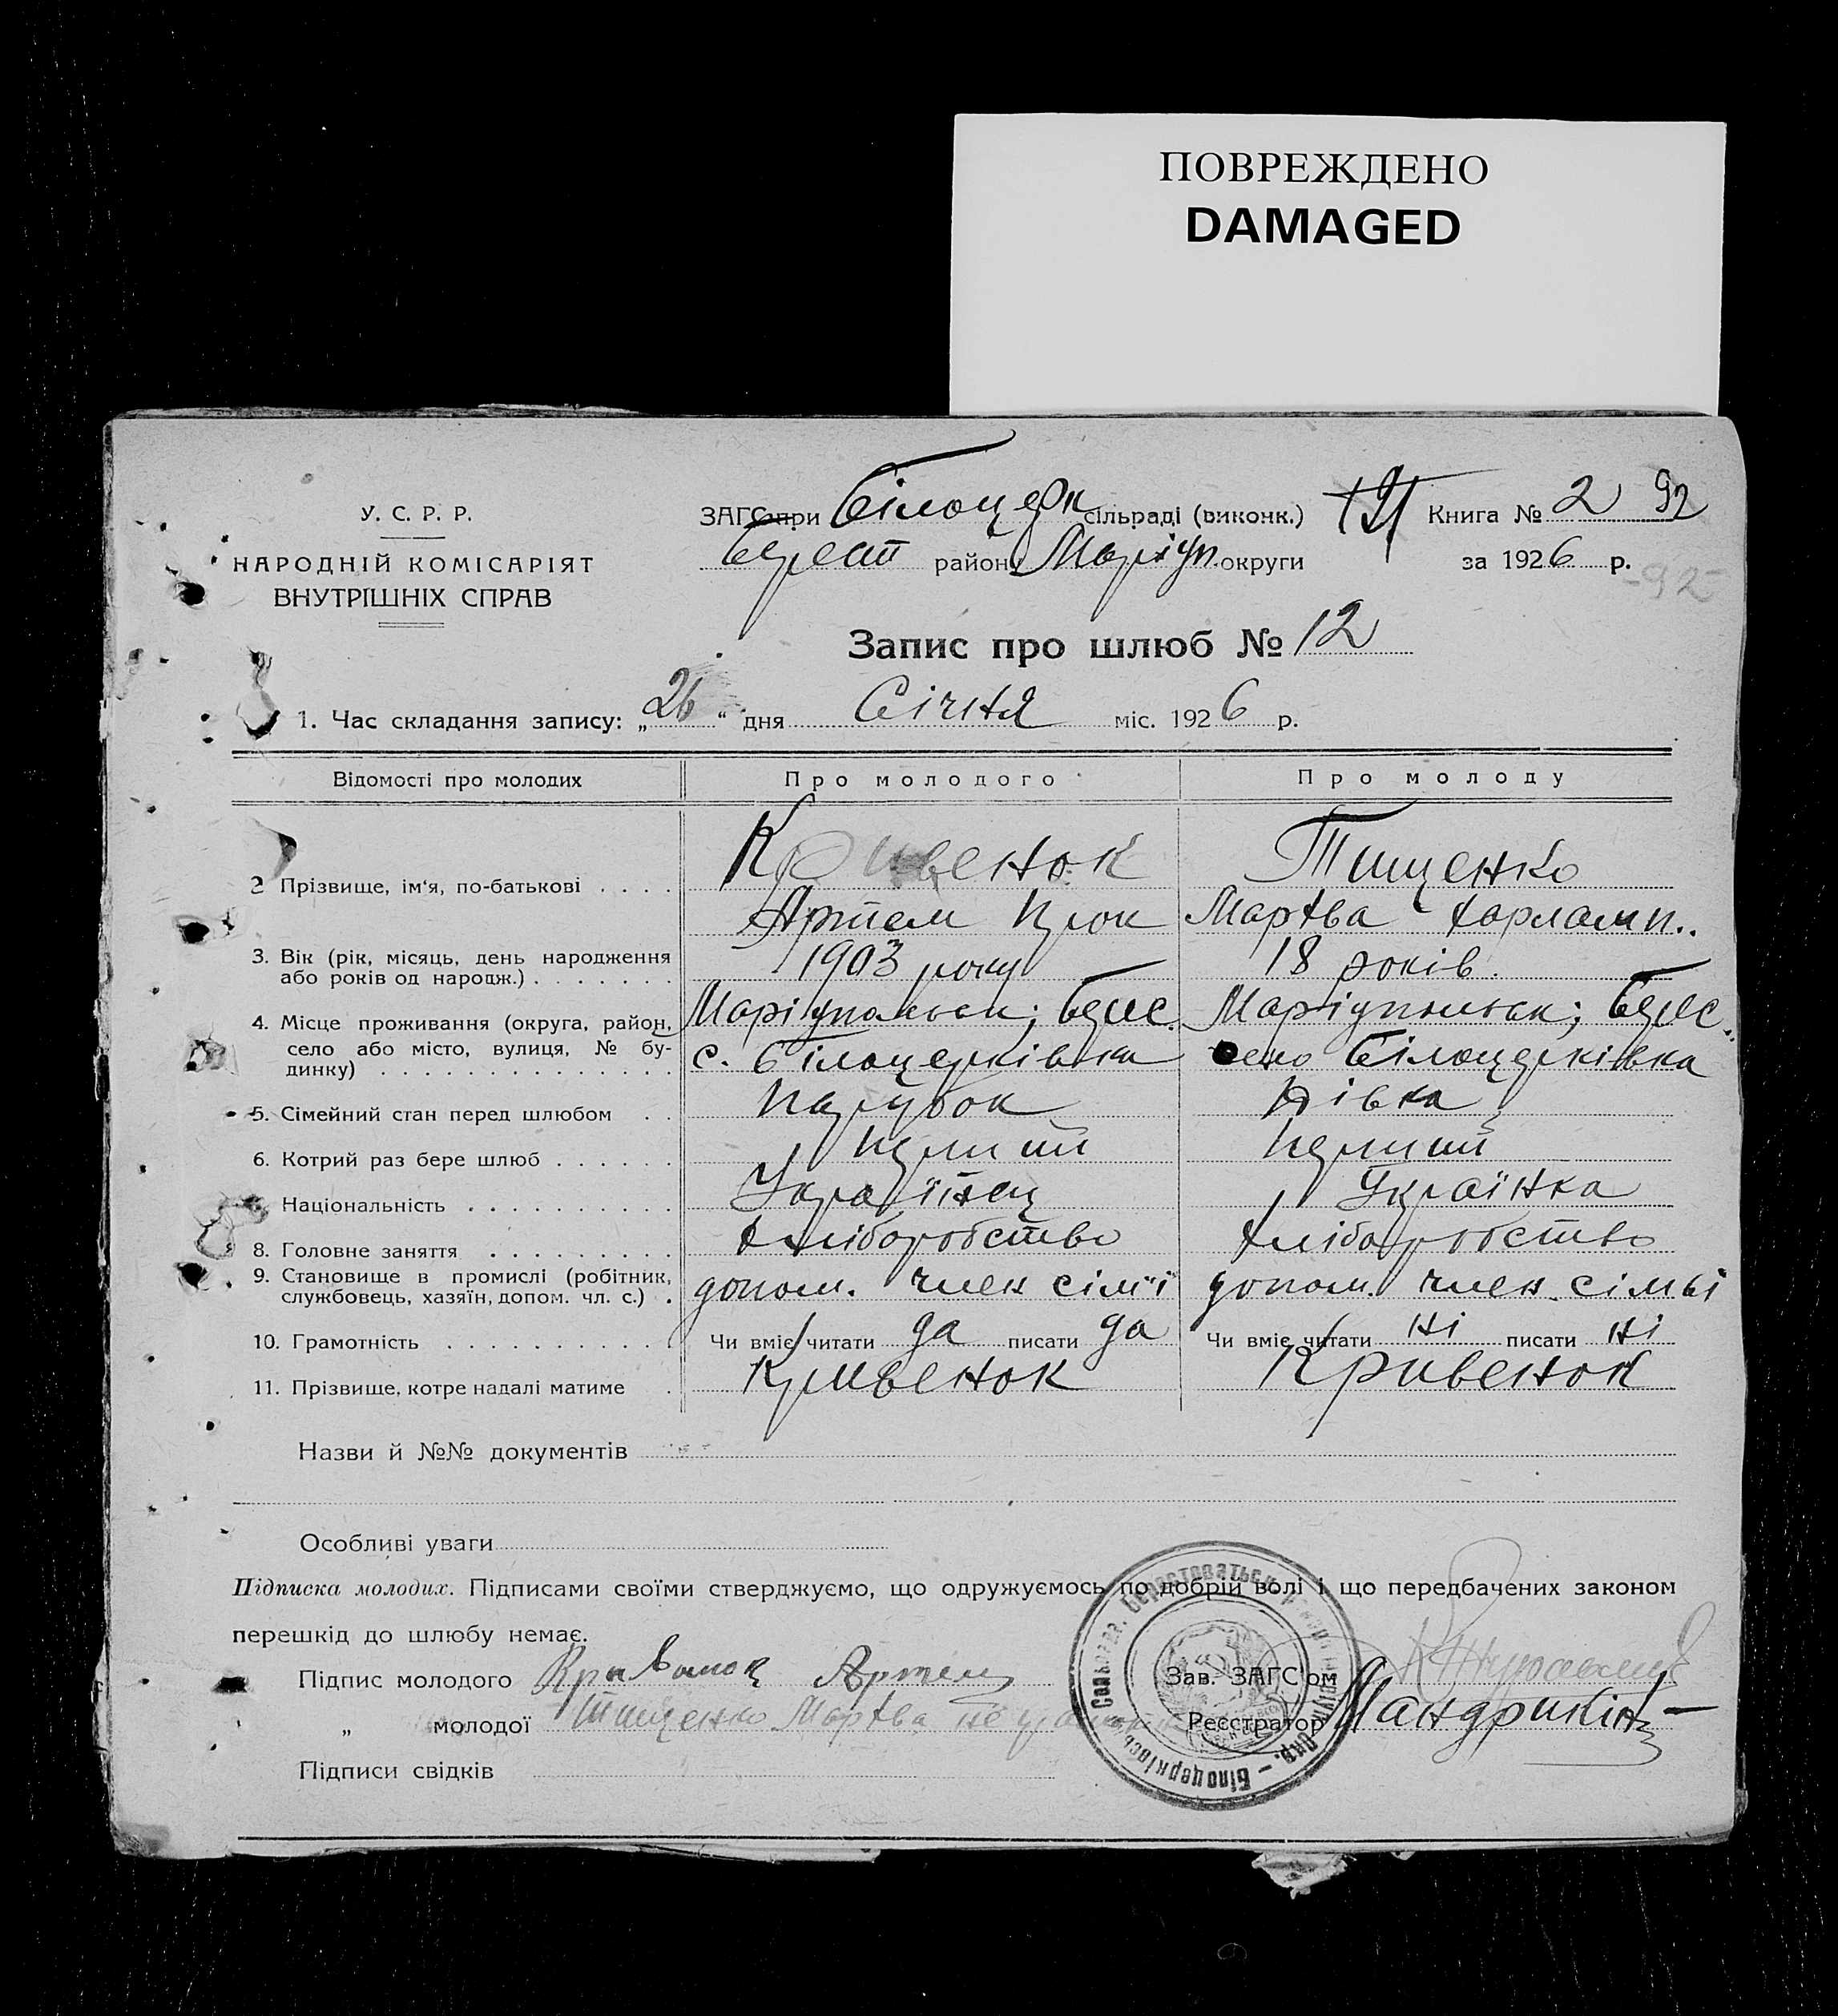 ПОВРЕЖДЕНО
DAMAGED
У. С. Р. Р.
НАРОДНІЙ КОМІСАРІЯТ
ВНУТРІШНІХ СПРАВ
ЗАГС при Білоцерк сільраді (виконк.) Книга № 2 92
Берест району Маріуп. округи за 1926 р.
-92-
Запис про шлюб № 12
1. Час складання запису: „26“ дня Січня міс. 1926 р.
Відомості про молодих Про молодого Про молоду
2 Прізвище, ім'я, по-батькові . . . . Кривенок Тищенко
Артем Прок Мартва Харламп..
3. Вік (рік, місяць, день народження або років од народж.) . . . . . . . 1903 року 18 років.
4. Місце проживання (округа, район, Маріупольськ; Берес. Маріупольськ; Берес.
село або місто, вулиця, № бу- с. Білоцерківка село Білоцерківка
динку) . . . . . . . . . . . . . .
5. Сімейний стан перед шлюбом . . Парубок Дівка
6. Котрий раз бере шлюб . . . . . . Перший Перший
Національність . . . . . . . . . . Українец Українка
8. Головне заняття . . . . . . . . . Хліборобство Хліборобство
9. Становище в промислі (робітник, службовець, хазяїн, допом. чл. с.) . допом. член сім'ї допом. член сімьї
10. Грамотність . . . . . . . . . . Чи вміє читати да писати да Чи вміє читати ні писати ні
11. Прізвище, котре надалі матиме . Кривенок Кривенок
Назви й №№ документів
Особливі уваги
Підписка молодих. Підписами своїми стверджуємо, що одружуємось по добрій волі і що передбачених законом
перешкід до шлюбу немає.
Підпис молодого Кривынок Артем Зав. ЗАГС'ом
„ молодої Тищенко Мартва не Реєстратор Мандрикін
Підписи свідків
Сільрада. Берестоватськ Окр. – Білоцерківськ